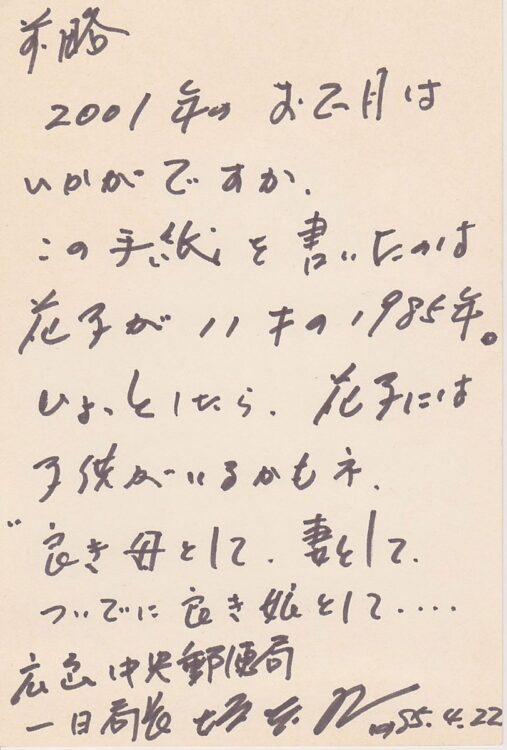 前略
2001年のお正月は
いかがですか、
この手紙を書いたのは
花子が11才の1985年。
ひょっとしたら、花子には
子供がいるかもネ、
"良き母として、妻として、
ついでに良き娘として‥‥
広島中央郵便局
一日局長 '85.4.22